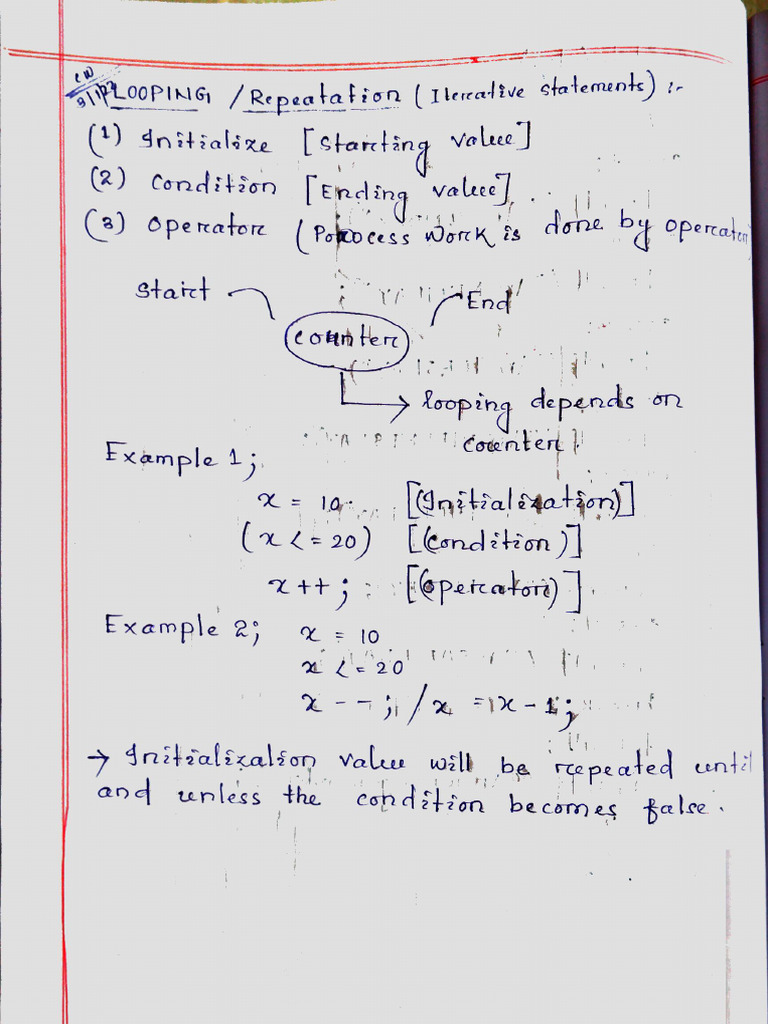 CW
LOOPING / Repeatation (Itereative Statements) :-
(1) Initialize [Starting value]
(2) Condition [Ending value]
(3) Operator (Process Work is done by operator
Start
End
Counter
looping depends on
counter.
Example 1;
x = 10 [(Initialization)]
(x <= 20) [(Condition)]
x++; [(Operator)]
Example 2; x = 10
x <= 20
x --; / x = x - 1;
→ Initialization value will be repeated until
and unless the condition becomes false.